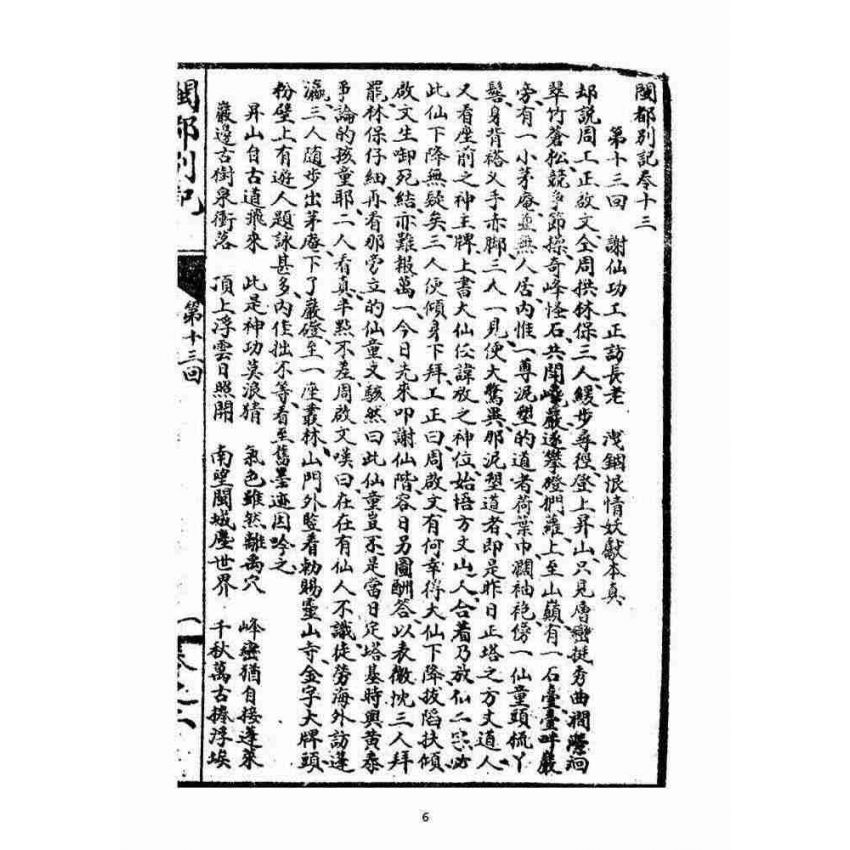 閩都別記卷十三
第十三回 謝仙功工正訪長老 洩錮浪情妖獻本真
却説周工正啟文仝周拱林保三人緩步尋徑登上昇山只見層巒挺秀曲澗瀠洄
翠竹蒼松競爭節操奇峰怪石共鬥巉巖遂攀磴捫蘿上至山巔有一石臺臺畔巖
旁有一小茅庵並無人居內惟一尊泥塑的道者荷葉巾濶袖袍傍一仙童頭梳丫
髻身背褡乂手赤脚三人一見便大驚異那泥塑道者即是昨日正塔之方丈道人
又看座前之神主牌上書大仙任諱放之神位始悟方文山人合着乃放仙二字
此仙下降無疑矣三人便傾身下拜工正曰周啟文有何幸得大仙下降拔陷扶傾
啟文生啣死結亦難報萬一今日先來叩謝仙階容日另圖酬答以表微忱三人拜
罷林保仔細再看那旁立的仙童文駭然曰此仙童豈不是當日定塔基時與黃泰
爭論的孩童耶二人看真半點不差周啟文嘆曰在在有仙人不識徒勞海外訪蓬
瀛三人隨步出茅庵下了巖磴至一座叢林山門外豎看勅賜靈山寺金字大牌頭
粉壁上有遊人題詠甚多內佳拙不等看至舊墨迹因吟之
昇山自古道飛來 此是神功莫浪猜 氣色雖然離禹穴 峰巒猶自接蓬萊
巖邊古樹泉衝落 頂上浮雲日照開 南望閩城塵世界 千秋萬古捲浮埃
閩都別記
第十三回
一
卷之六
6